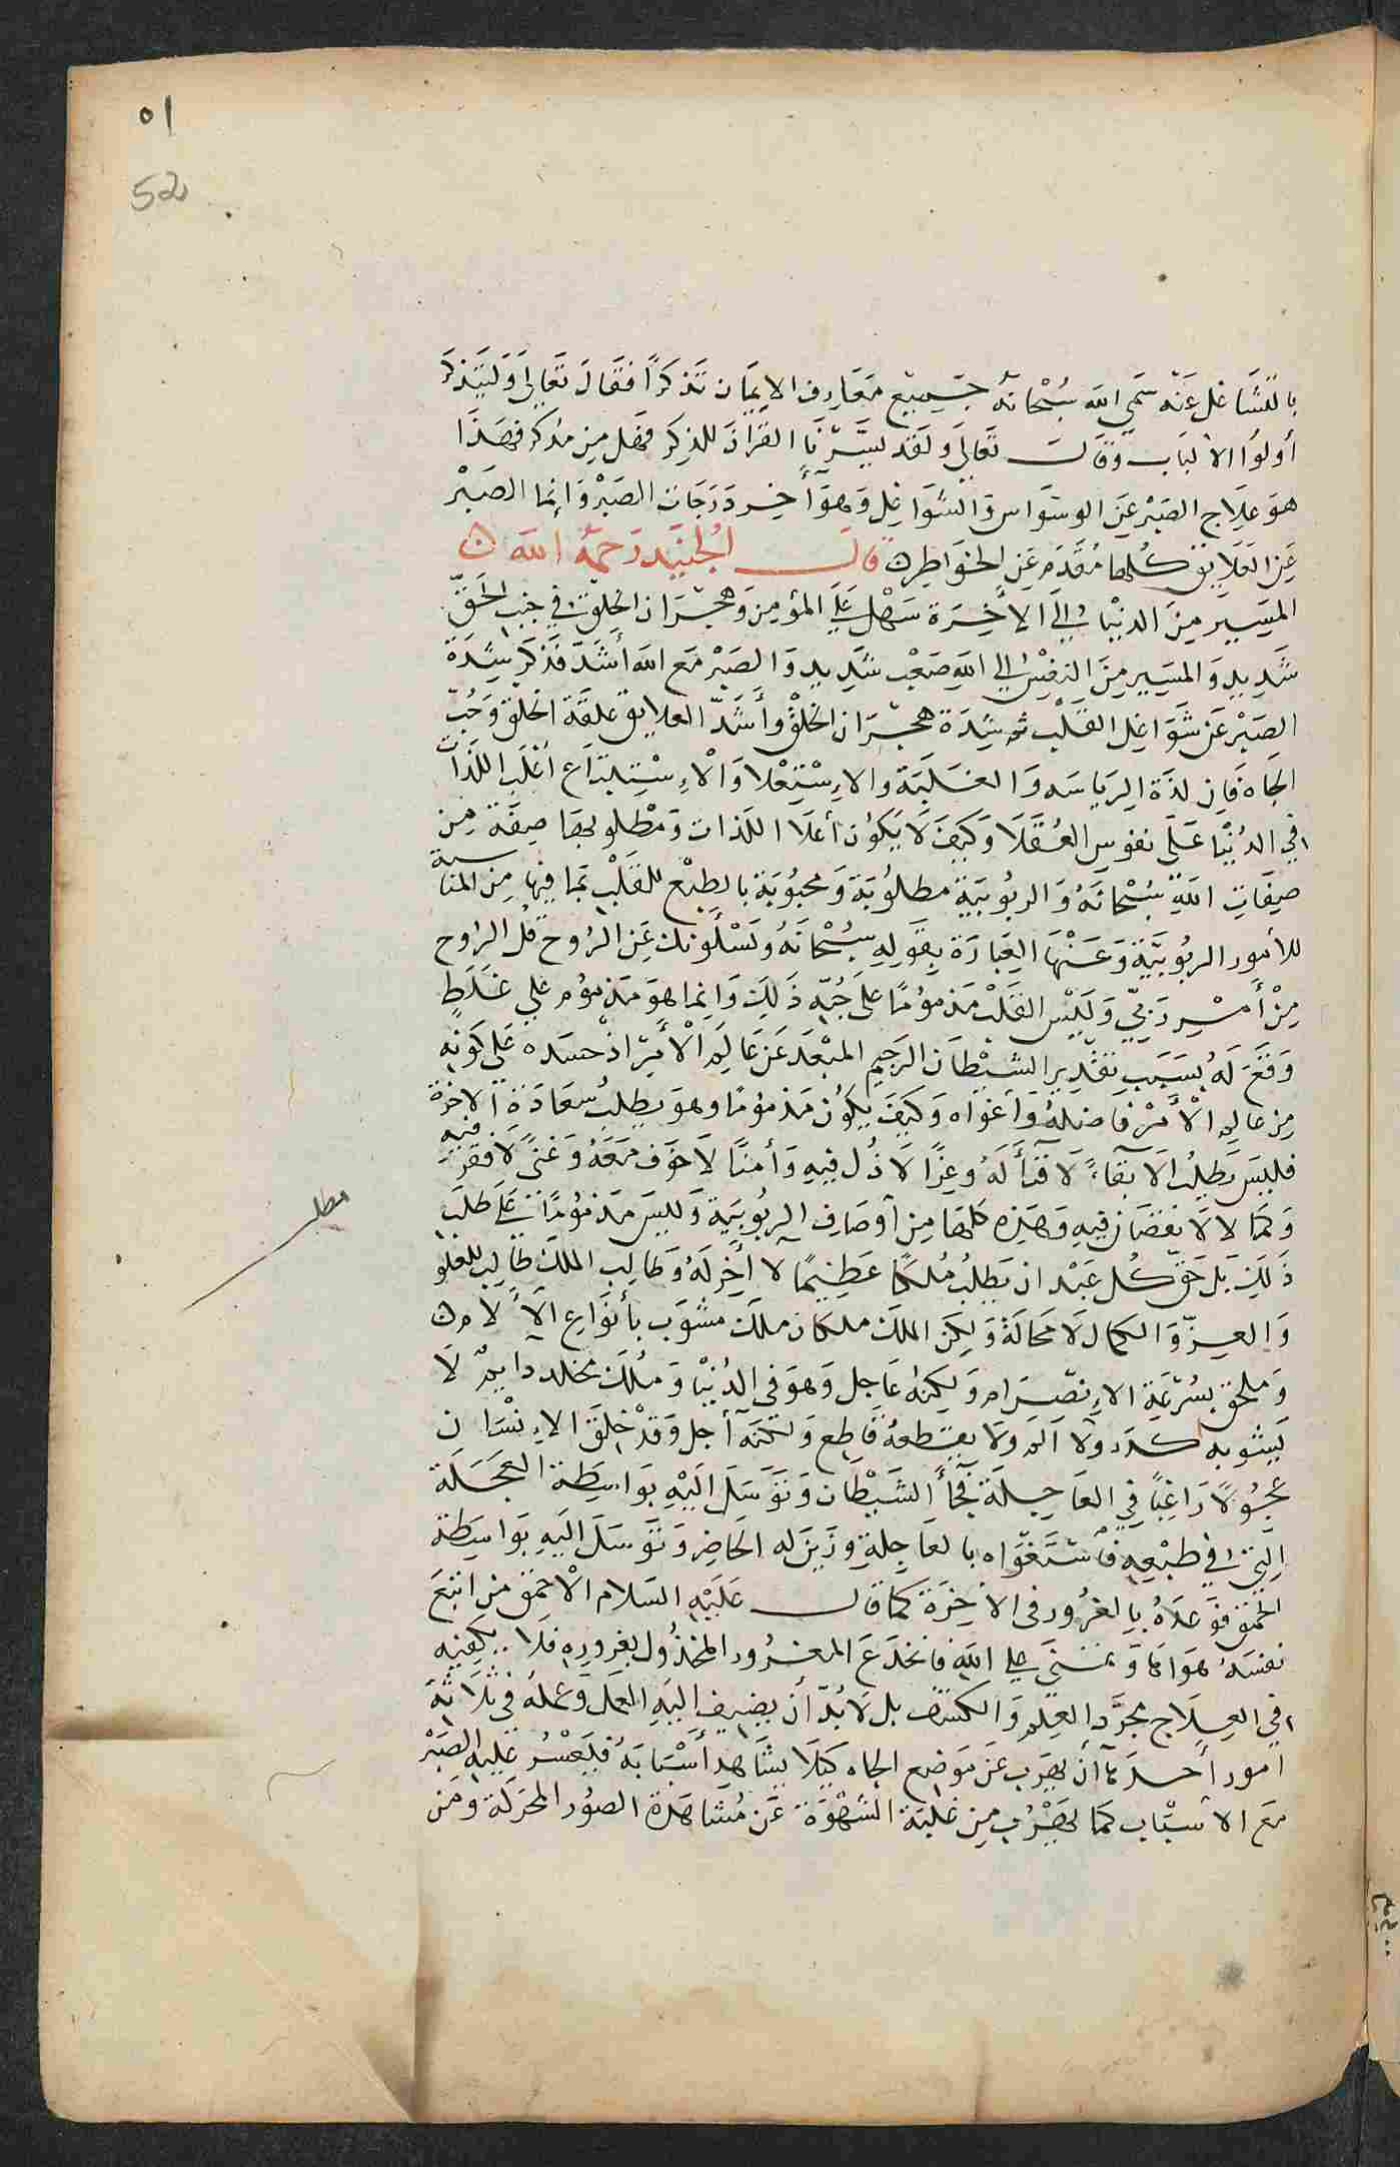 ٥١
52
بالتشاغل عنه سمي الله سبحانه جميع معارف الايمان تذكرًا فقال تعالى وليتذكر
أولوا الالباب وقال تعالى ولقد يسرنا القران للذكر فهل من مدكر فهذا
هو علاج الصبر عن الوسواس والشواغل وهو أخر درجات الصبر وانما الصبر
عن العلايق كلها مقدم عن الخواطر قال الجنيد رحمه الله
المسير من الدنيا إلى الاخرة سهل على المؤمن وهجران الخلق في جنب الحق
شديد والمسير من النفس الى الله صعب شديد والصبر مع الله أشد فذكر شدة
الصبر عن شواغل القلب ثم شدة هجران الخلق وأشد العلايق علقة الخلق وحب
الجاه فان لذة الرياسه والغلبة والاستعلا والاستتباع أغلب اللذات
في الدنيا على نفوس العقلا وكيف لا يكون أعلا اللذات ومطلوبها صفة من
صفات الله سبحانه والربوبية مطلوبة ومحبوبة بالطبع للقلب بما فيها من المناسبة
للأمور الربوبية وعنها العبارة بقوله سبحانه ويسئلونك عن الروح قل الروح
من أمر ربي وليس القلب مذمومًا على حبه ذلك وانما هو مذموم على غلط
وقع له بسبب تغرير الشيطان الرجيم المبعد عن عالم الأمر اذ حسده على كونه
من عالم الأمر فاضله وأغواه وكيف يكون مذمومًا وهو يطلب سعادة الاخرة
فليس يطلب الا بقاءً لا فنأ له وعزًا لا ذل فيه وأمنًا لا خوف معه وغنىً لا فقر فيه
وكمالا لا نقصان فيه وهذه كلها من أوصاف الربوبية وليس مذمومًا على طلب
مطلب
ذلك بل حق كل عبد ان يطلب ملكًا عظيمًا لا أخر له وطالب الملك طالب للعلو
والعز والكمال لا محالة ولكن الملك ملكان ملك مشوب بأنواع الألام
وملحق بسرعة الانصرام ولكنه عاجل وهو في الدنيا وملك مخلد دايم لا
يشوبه كدر ولا ألم ولا يقطعه قاطع ولكنه آجل وقد خلق الانسان
عجولًا راغبًا في العاجلة فجأ الشيطان وتوسل اليه بواسطة العجلة
التي في طبعه فاستغواه بالعاجلة وزين له الحاضر وتوسل اليه بواسطة
الحمق فوعده بالغرور في الاخرة كما قال عليه السلام الأحمق من اتبع
نفسه هواها وتمنى على الله فانخدع المغرور المخذول بغروره فلا يكفيه
في العلاج مجرد العلم والكشف بل لا بد أن يضيف اليه العمل وعمله في ثلاثة
أمور أحدها أن يهرب عن موضع الجاه كيلا يشاهد أسبابه فيعسر عليه الصبر
مع الاسباب كما يهرب من غلبة الشهوة عن مشاهدة الصور المحركة ومن